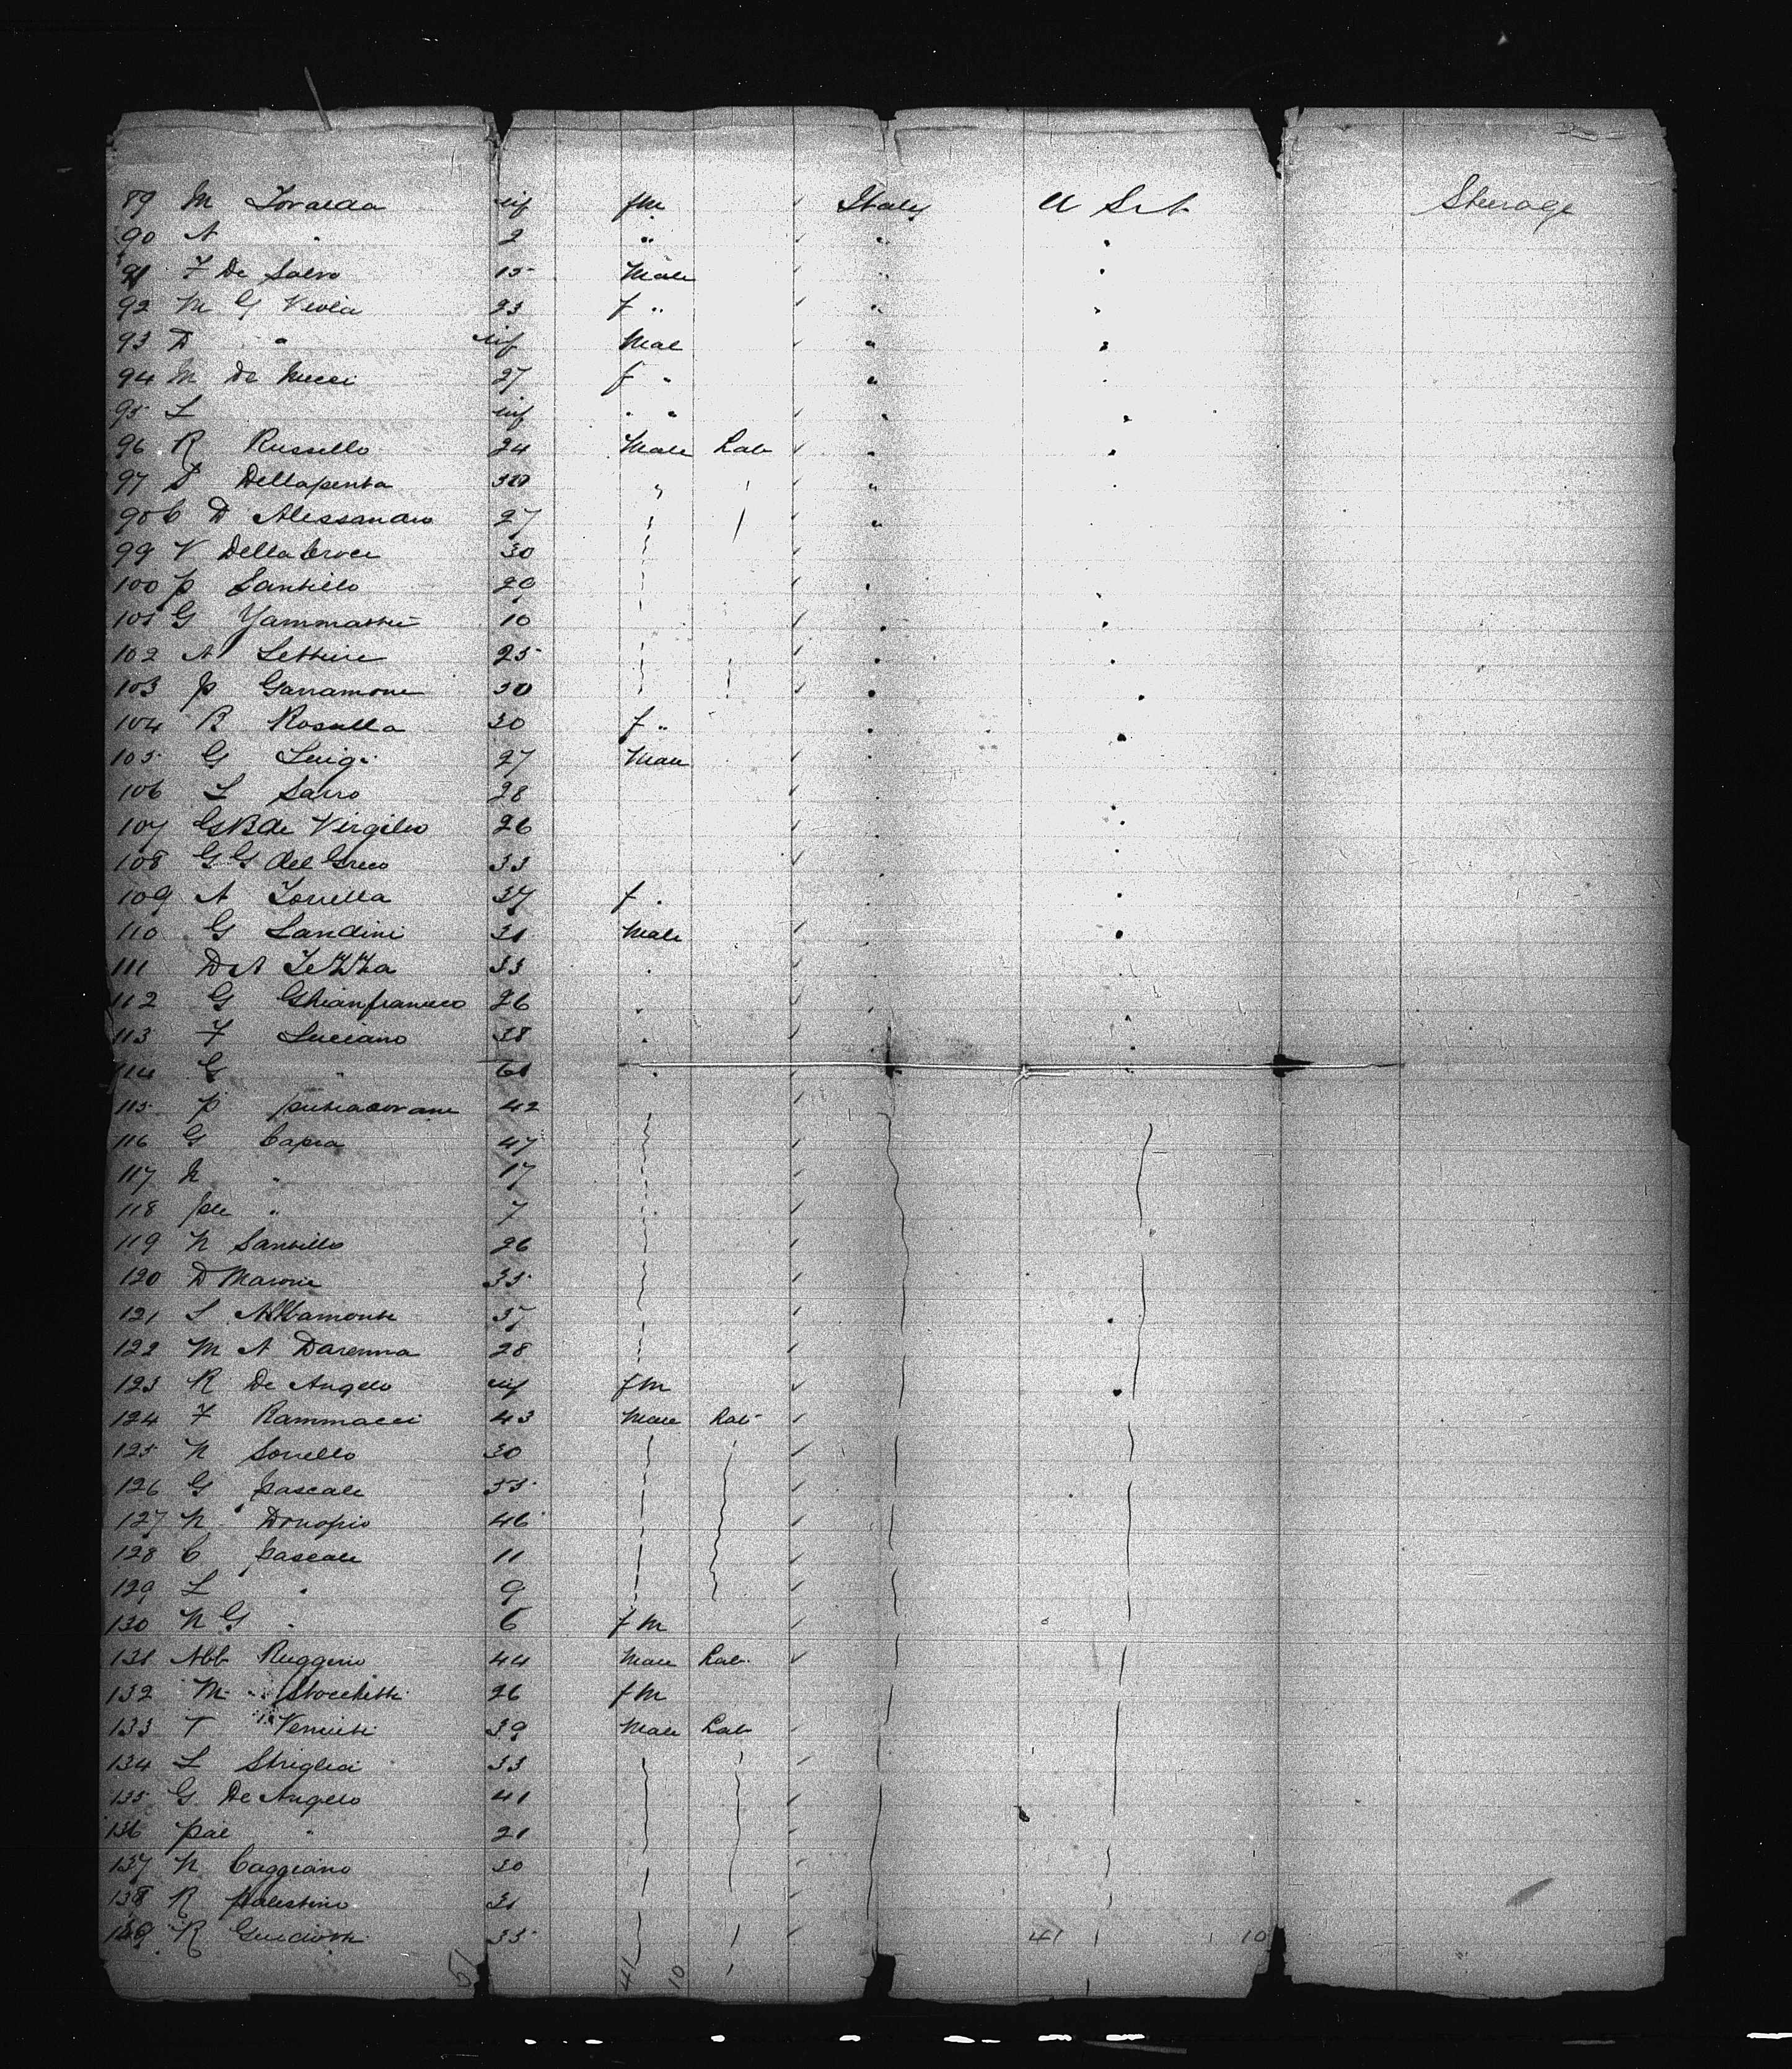 89 M Tovalda inf fm Italy U St Steerage
90 A " 2 " " "
91 F De Salvo 15 Male " "
92 M G Viola 23 f " " "
93 D " inf Mal " "
94 M De Nucci 27 f " " "
95 L inf " " " "
96 R Russello 24 Male Lab " "
97 D Dellapenta 30 " " " "
98 C D Alessandro 27 "
99 V Della Croce 30
100 P Santillo 29
101 G 10
102 A Lettiere 25
103 P Garramone 30
104 R Rosulla 30 f "
105 G Luigi 27 Male
106 L Sarro 28
107 G B de Virgilio 26
108 G G del Greco 33
109 A Torrella 37 f "
110 G Landini 31 Male
111 D A Tezza 33
112 G Ghianfrancesco 26
113 F Luciano 38
114 G " 61
115 P 42
116 G Capra 47
117 N " 17
118 "  7
119 N Santillo 26
120 D Marone 35
121 L Abbamonte 37
122 M A Darenna 28
123 R De Angelo inf fm
124 F Rammacci 43 Male Lab
125 N Sorrello 30
126 G Pascale 35
127 N Donofrio 46
128 C Pascale 11
129 L " 9
130 N G " 6 fm
131 Abb Ruggerio 44 Male Lab
132 M Stocchetti 26 fm
133 T 39 Male Lab
134 L Striglia 33
135 G De Angelo 41
136 " 21
137 N Caggiano 30
138 R Palestino 31
R 35 41 10
51 41 10